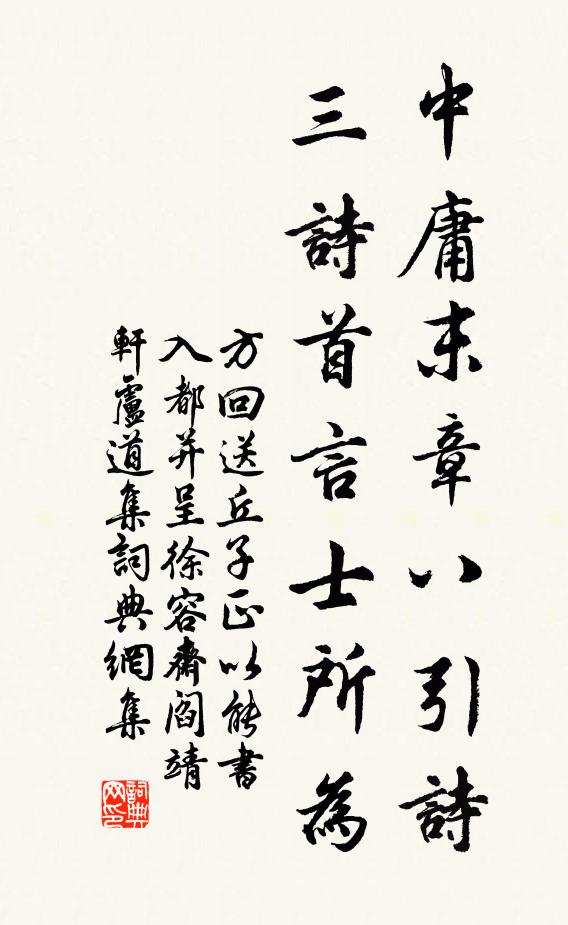 中庸末章八引詩
三詩首言士所為
方回送丘子正以能書
入都并呈徐容齋閻靖
軒盧道集詞典網集
詞典
网印